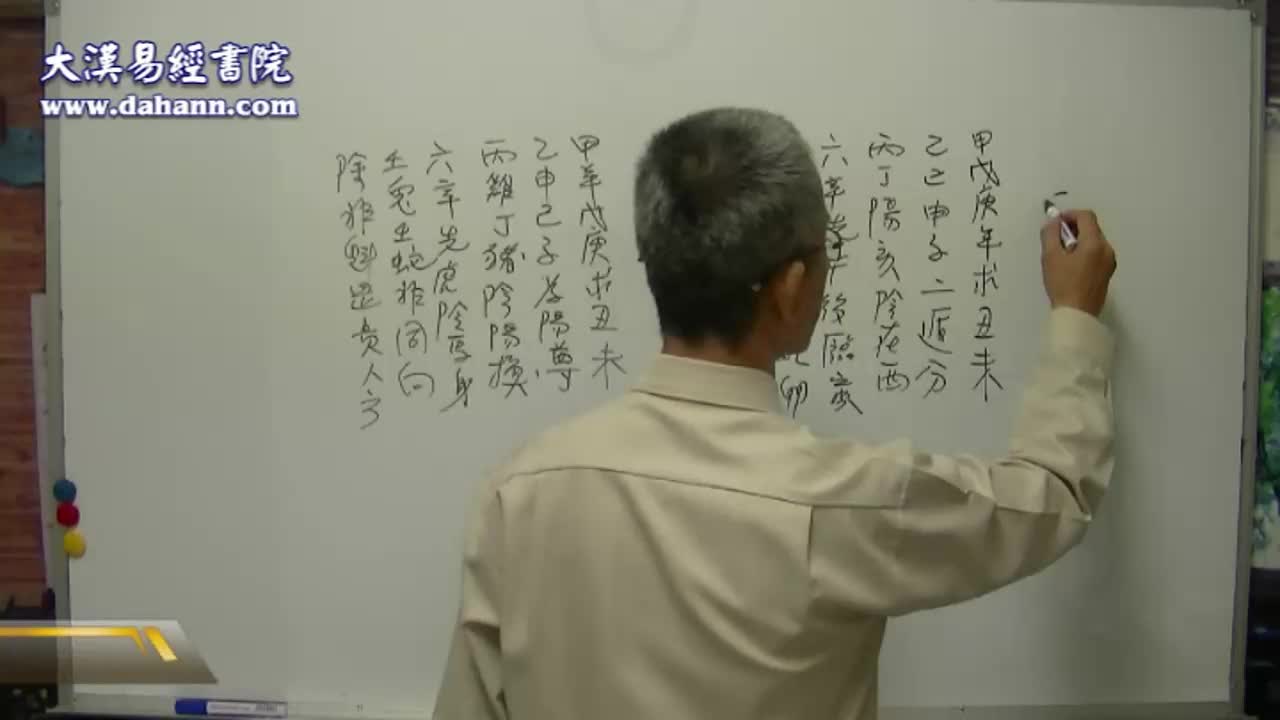 大漢易經書院
www.dahann.com
甲戊庚年求丑未
乙己申子二遁分
丙丁陽亥陰在酉
六辛
後臨
卯
甲羊戊庚求丑未
乙申己子為陽尊
丙雞丁豬陰陽換
六辛先虎陰馬身
壬兔
蛇非同向
除非魁罡貴人方